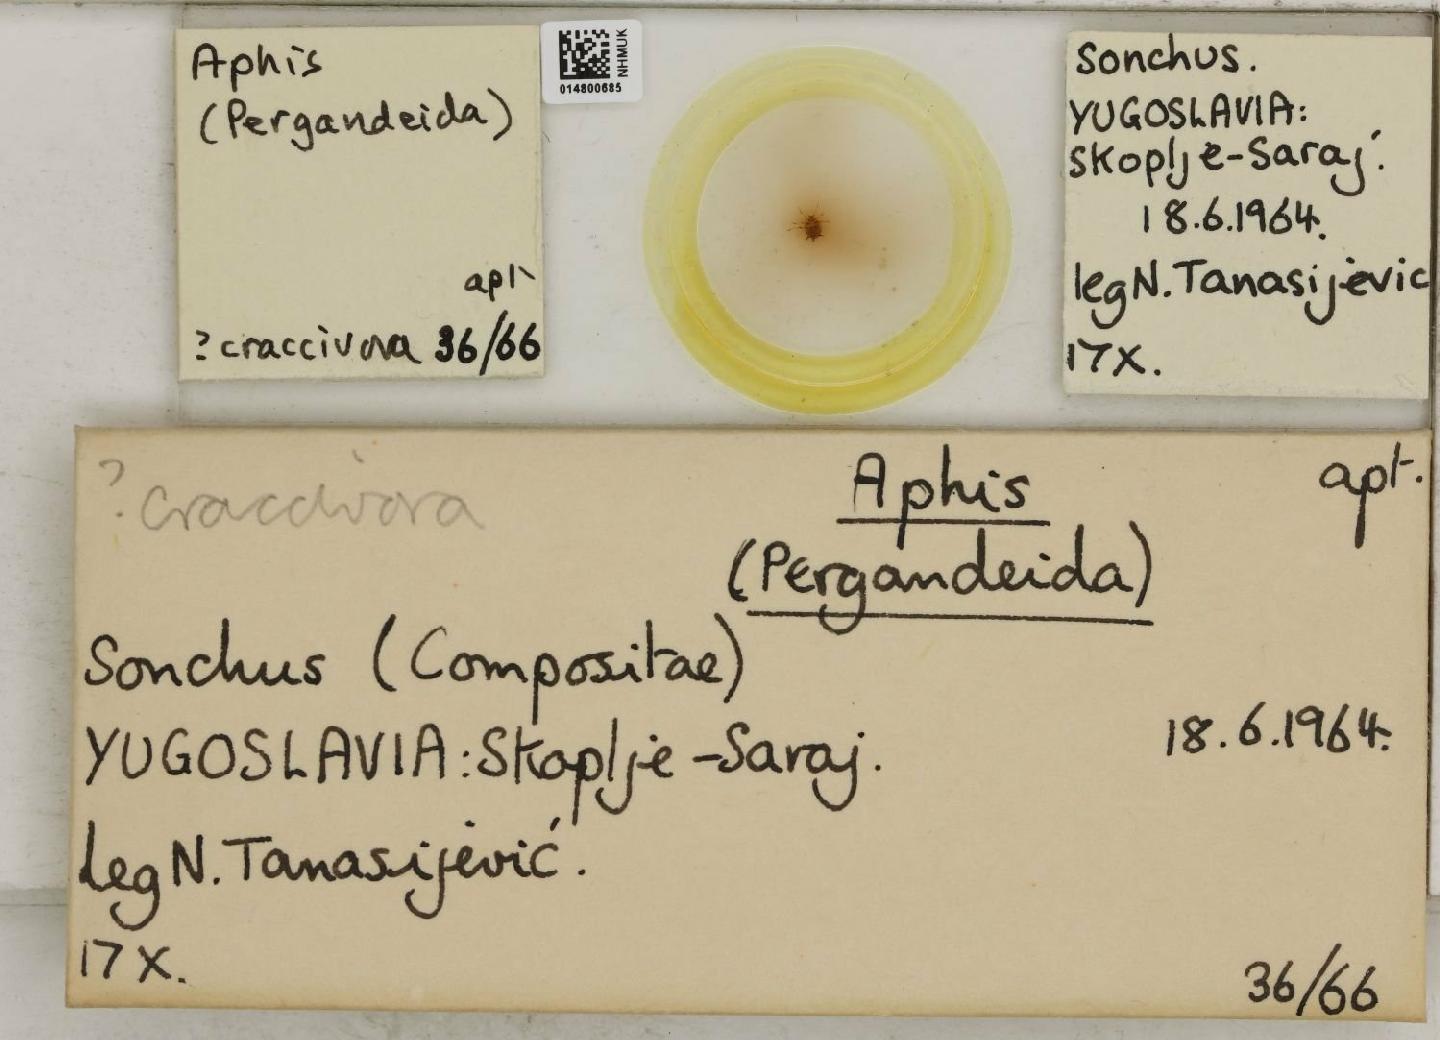 Aphis
(Pergandeida)
apt
? craccivora 36/66
NHMUK
014800685
Sonchus.
YUGOSLAVIA:
Skoplje-Saraj.
18.6.1964.
leg N. Tanasijevic
17X.
? craccivora
Aphis
apt.
(Pergandeida)
Sonchus (Compositae)
YUGOSLAVIA: Skoplje-Saraj.
18.6.1964.
leg N. Tanasijević.
17X.
36/66